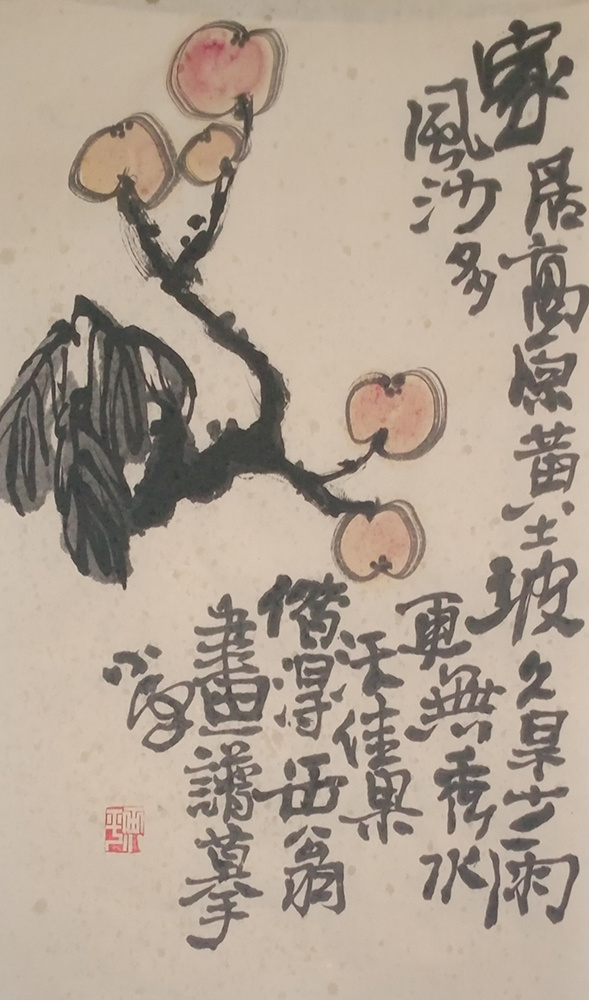 家居高原黃土坡久旱少雨
風沙多
更無秀水
沃佳果
借得缶翁
畫譜摹
小